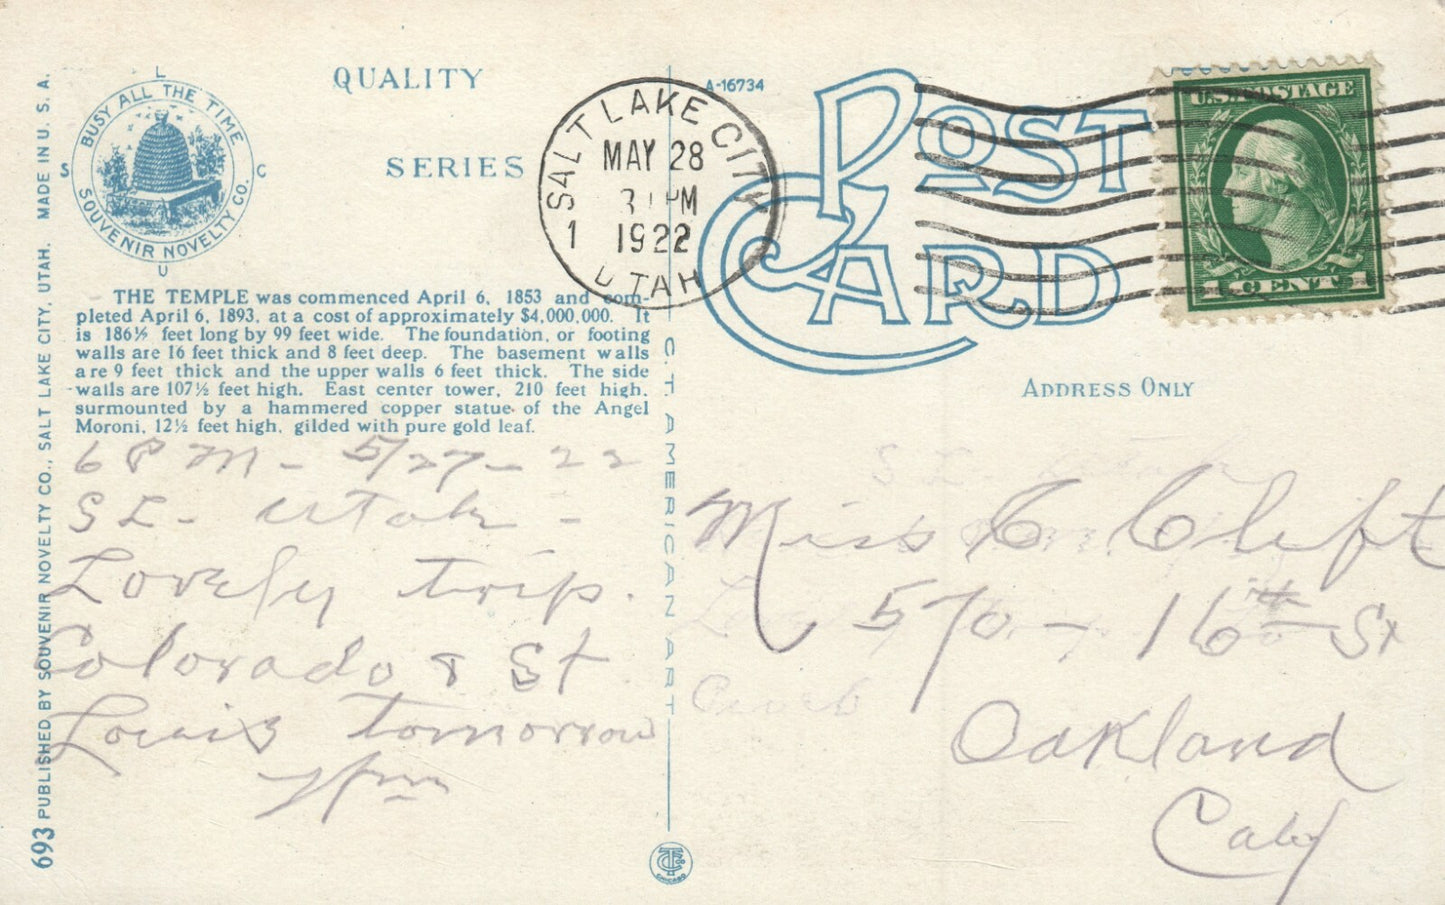 QUALITY
SERIES
L
S
C
U
BUSY ALL THE TIME
SOUVENIR NOVELTY CO.
693 PUBLISHED BY SOUVENIR NOVELTY CO., SALT LAKE CITY, UTAH. MADE IN U. S. A.
THE TEMPLE was commenced April 6, 1853 and com-
pleted April 6, 1893, at a cost of approximately $4,000,000. It
is 186½ feet long by 99 feet wide. The foundation, or footing
walls are 16 feet thick and 8 feet deep. The basement walls
are 9 feet thick and the upper walls 6 feet thick. The side
walls are 107½ feet high. East center tower, 210 feet high,
surmounted by a hammered copper statue of the Angel
Moroni, 12½ feet high, gilded with pure gold leaf.
6 PM - 5/27-22
SL - Utah -
Lovely trip.
Colorado & St
Louis tomorrow
C.T. AMERICAN ART
CHICAGO
SALT LAKE CITY
MAY 28
PM
1 1922
UTAH
A-16734
POST
CARD
U.S. POSTAGE
1 CENT 1
ADDRESS ONLY
Miss C Clift
570 - 16th St
Oakland